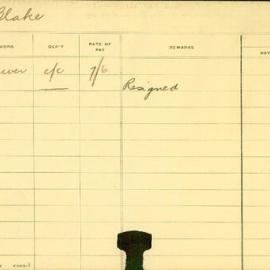 Blake
WORK DEP'T RATE OF PAY REMARKS
c/c 7/6
Resigned